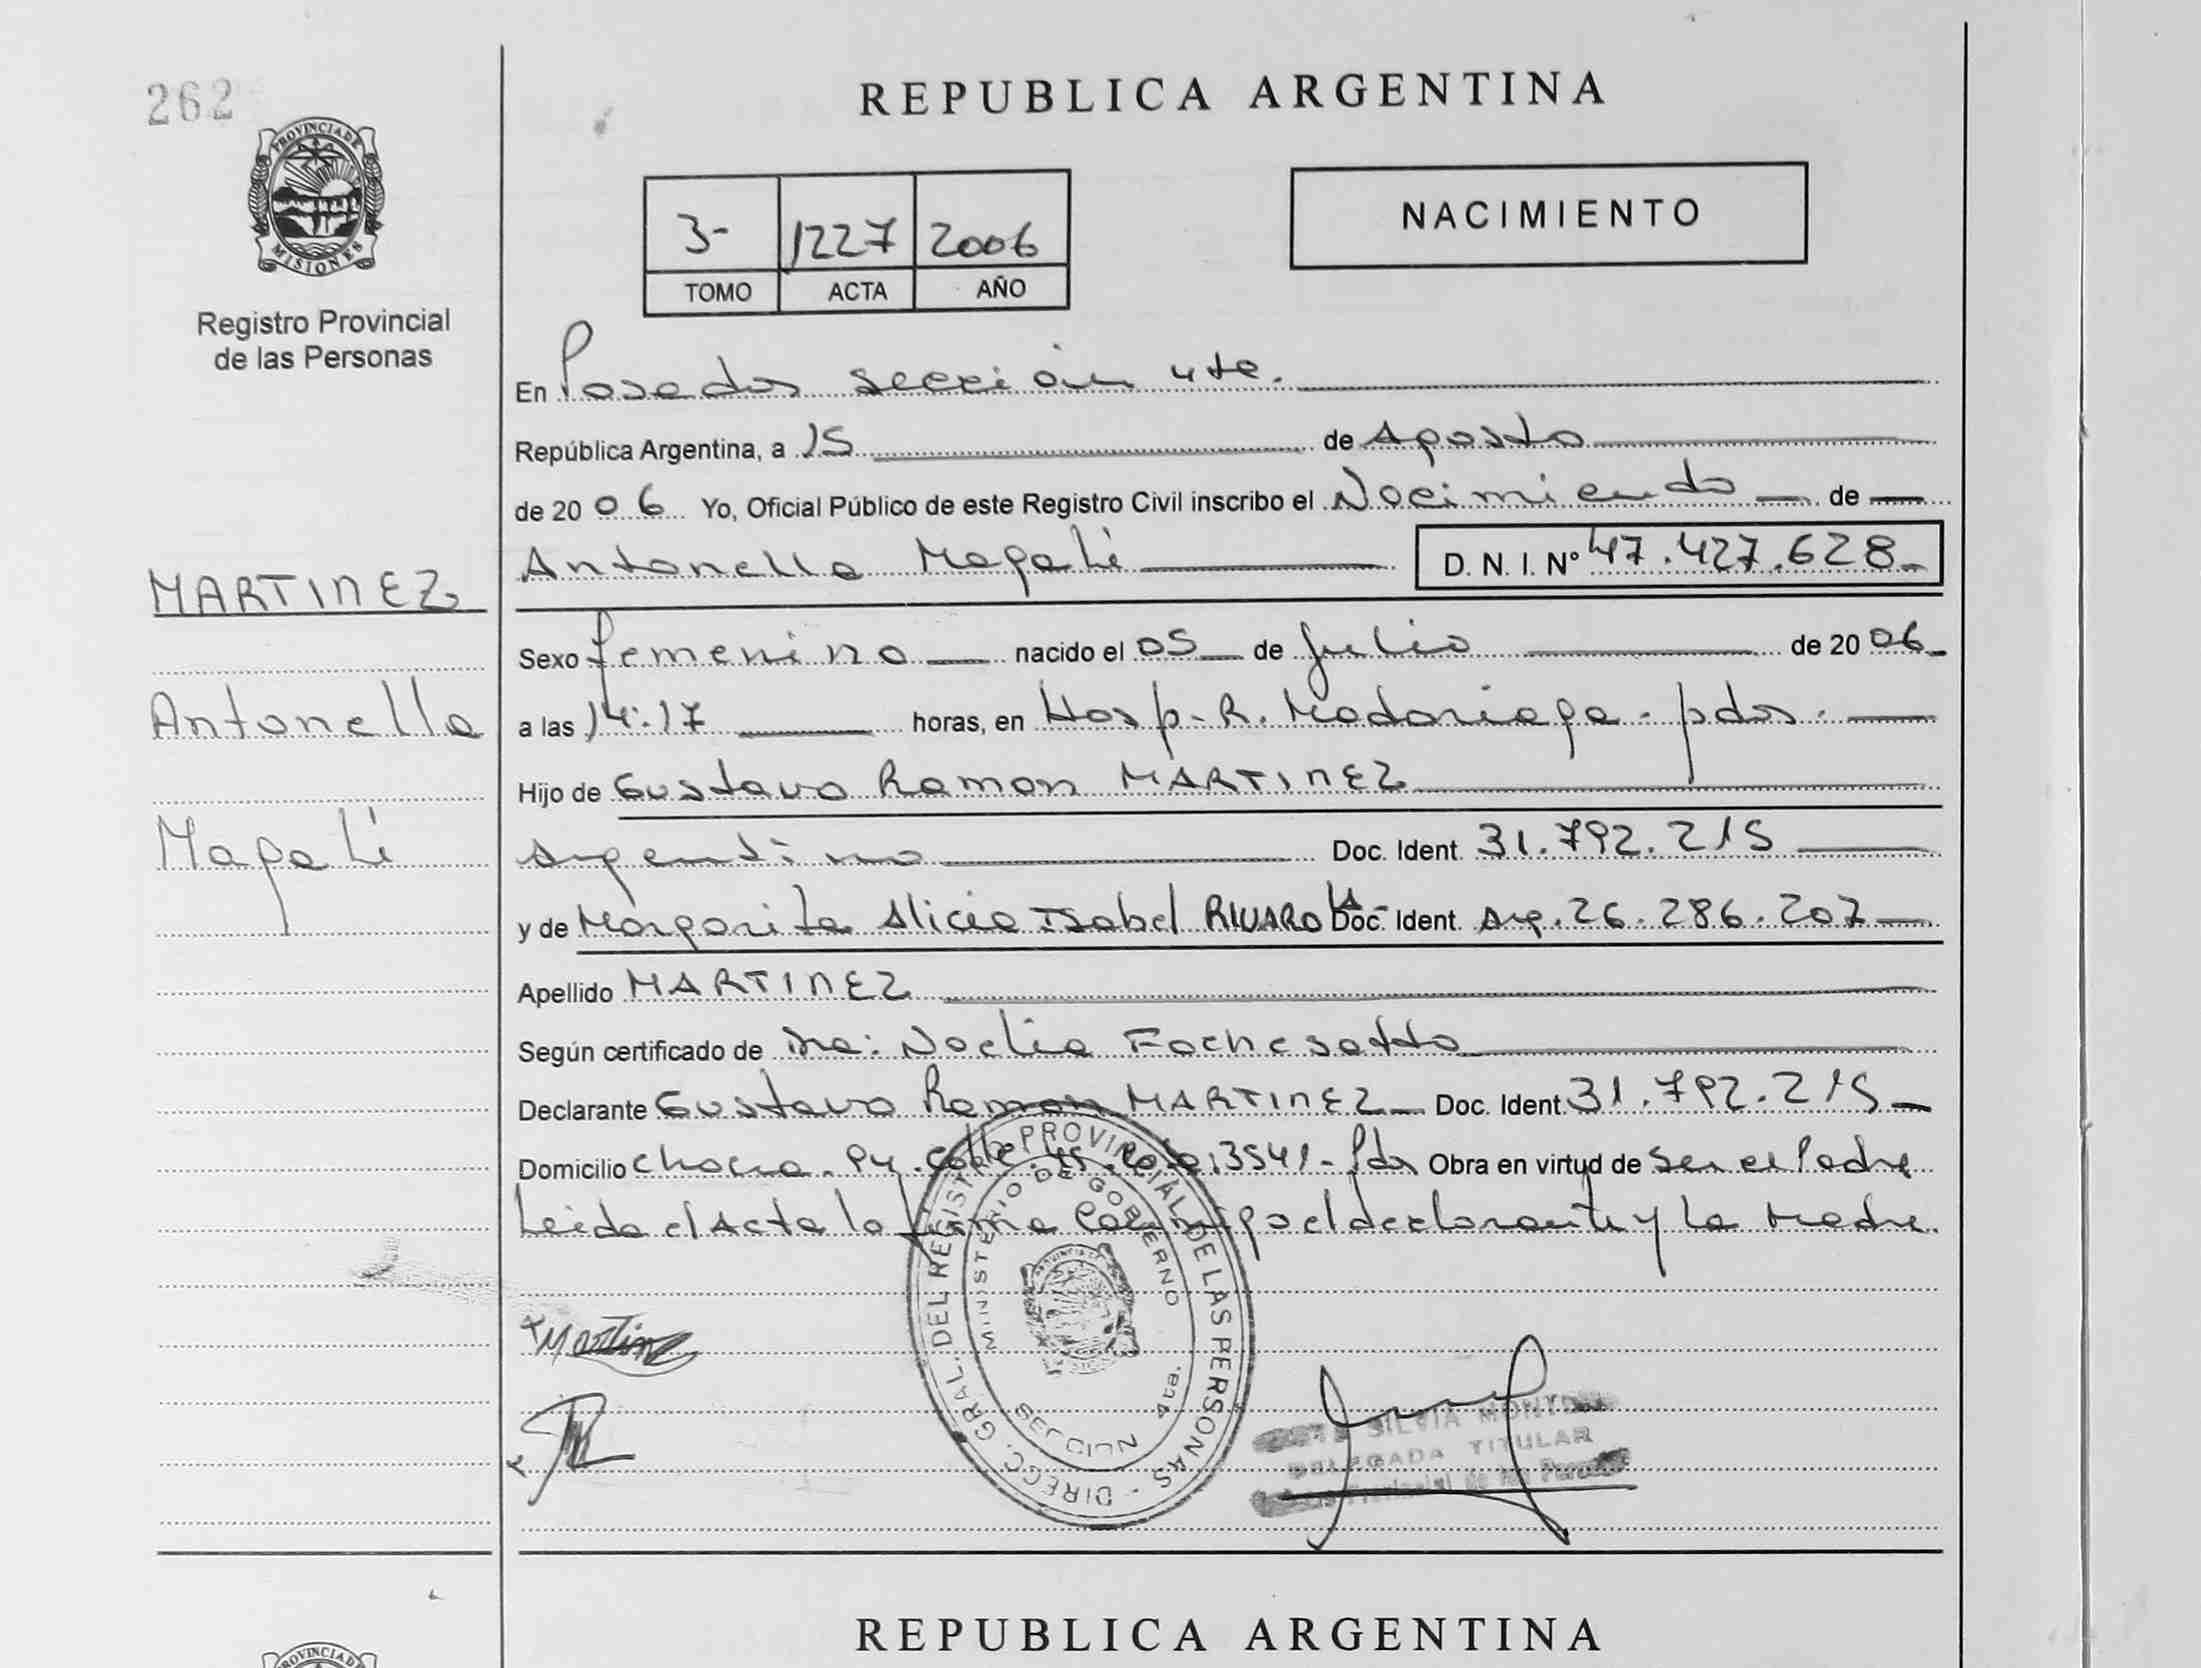 262
PROVINCIA DE
MISIONES
Registro Provincial
de las Personas
REPUBLICA ARGENTINA
3- 1227 2006
TOMO ACTA AÑO
NACIMIENTO
En Posadas sección 4ta.
República Argentina, a 15 de Agosto
de 2006 Yo, Oficial Público de este Registro Civil inscribo el Nacimiento de
Antonella Magalí D. N. I. Nº 47.427.628
MARTINEZ
Antonella
Magalí
Sexo femenino nacido el 05 de Julio de 2006
a las 14:17 horas, en Hosp. R. Madariaga. pdas.
Hijo de Gustavo Ramon MARTINEZ
argentino Doc. Ident. 31.792.215
y de Margarita Alicia Isabel RIVAROLA Doc. Ident. arg. 26.286.207
Apellido MARTINEZ
Según certificado de Dra: Noelia Fochesatto
Declarante Gustavo Ramon MARTINEZ Doc. Ident. 31.792.215
Domicilio chacra. 94. calle 3541- Pdas Obra en virtud de ser el Padre
Leida el Acta la firma conmigo el declarante y la Madre.
DIRECC. GRAL. DEL REGIST. PROVINCIAL DE LAS PERSONAS
MINISTERIO DE GOBIERNO
SECCION 4ta.
Martinez
SILVIA
DELEGADA TITULAR
Provincial de las Personas
REPUBLICA ARGENTINA
PROVINCIA D